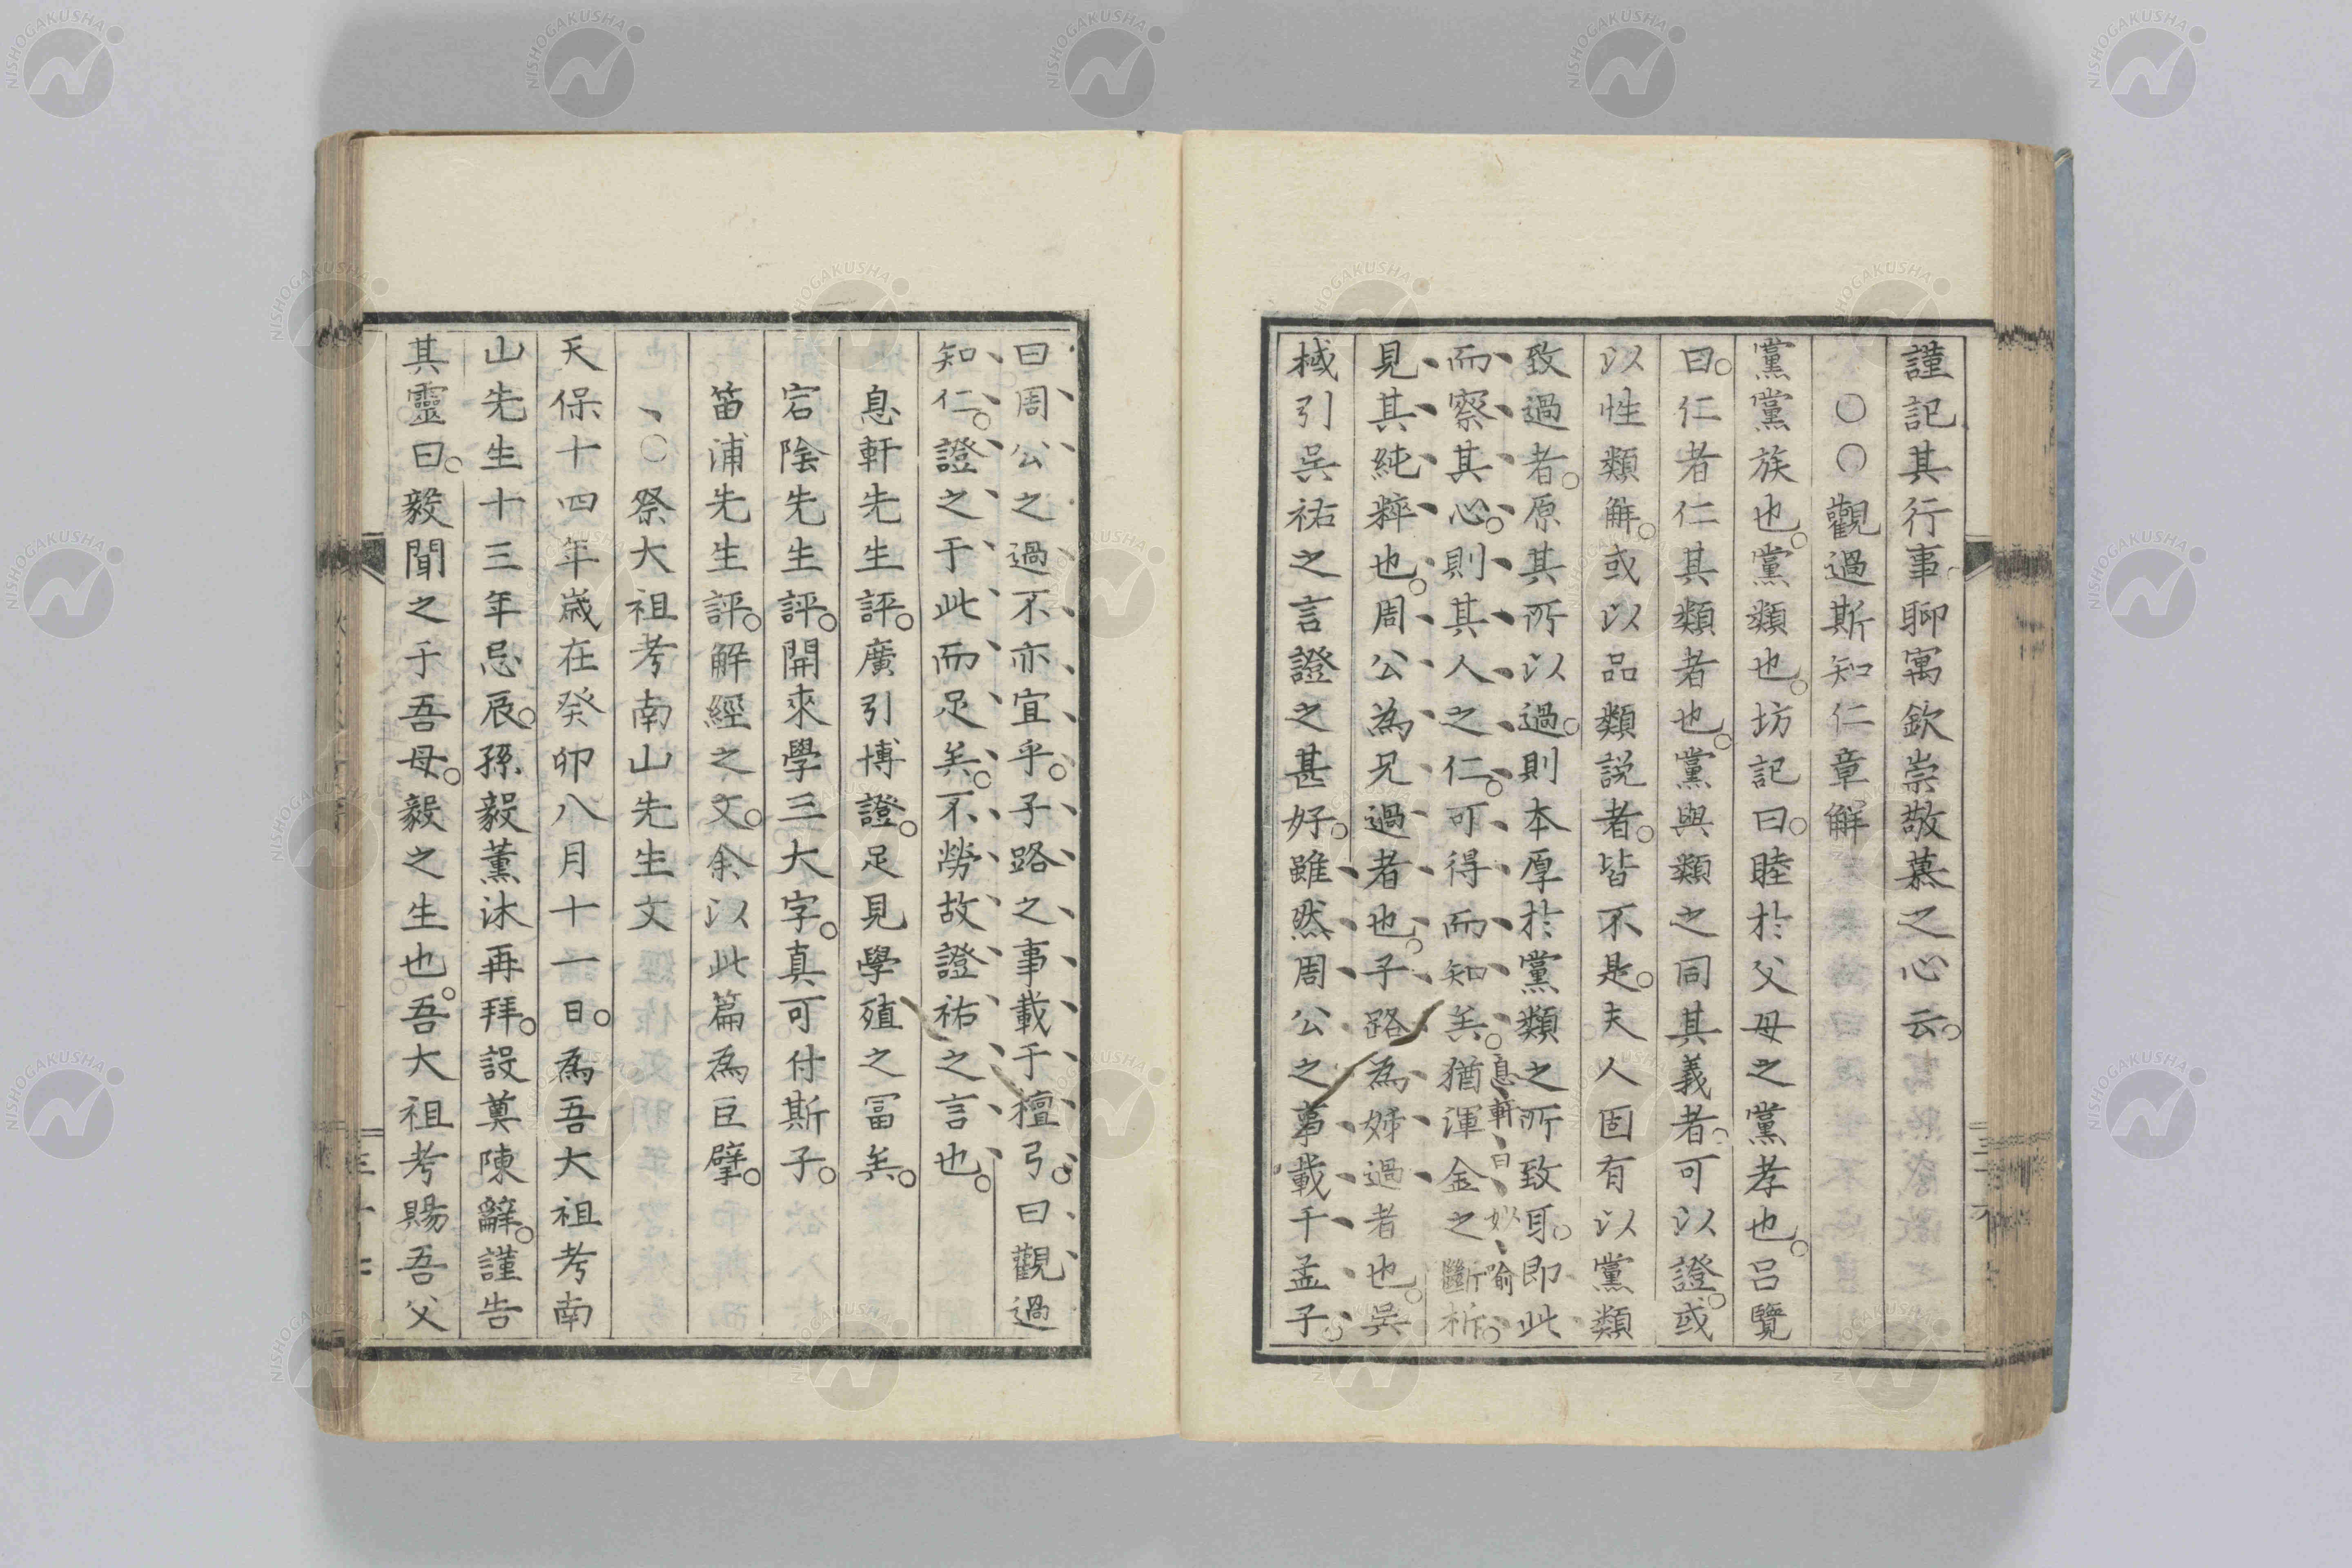 謹記其行事聊寓欽崇敬慕之心云。
○○觀過斯知仁章解
黨黨族也。黨類也。坊記曰。睦於父母之黨孝也。呂覽
曰。仁者仁其類者也。黨與類之同其義者。可以證。或
以性類解。或以品類説者。皆不是。夫人固有以黨類
致過者。原其所以過。則本厚於黨類之所致耳。即此
而察其心。則其人之仁。可得而知矣。猶渾金之斷柝。
息軒曰妙喻
見其純粹也。周公為兄過者也。子路為姊過者也。吳
棫引吳祐之言證之甚好。雖然周公之事載于孟子。
曰周公之過不亦宜乎。子路之事載于檀弓。曰觀過
知仁。證之于此而足矣。不勞故證祐之言也。
息軒先生評。廣引博證。足見學殖之冨矣。
宕陰先生評。開來學三大字。真可付斯子。
笛浦先生評。解經之文。余以此篇為巨擘。
、○祭大祖考南山先生文
天保十四年歲在癸卯八月十一日。為吾大祖考南
山先生十三年忌辰。孫毅薰沐再拜。設奠陳辭。謹告
其靈曰。毅聞之于吾母。毅之生也。吾大祖考賜吾父
NISHOGAKUSHA